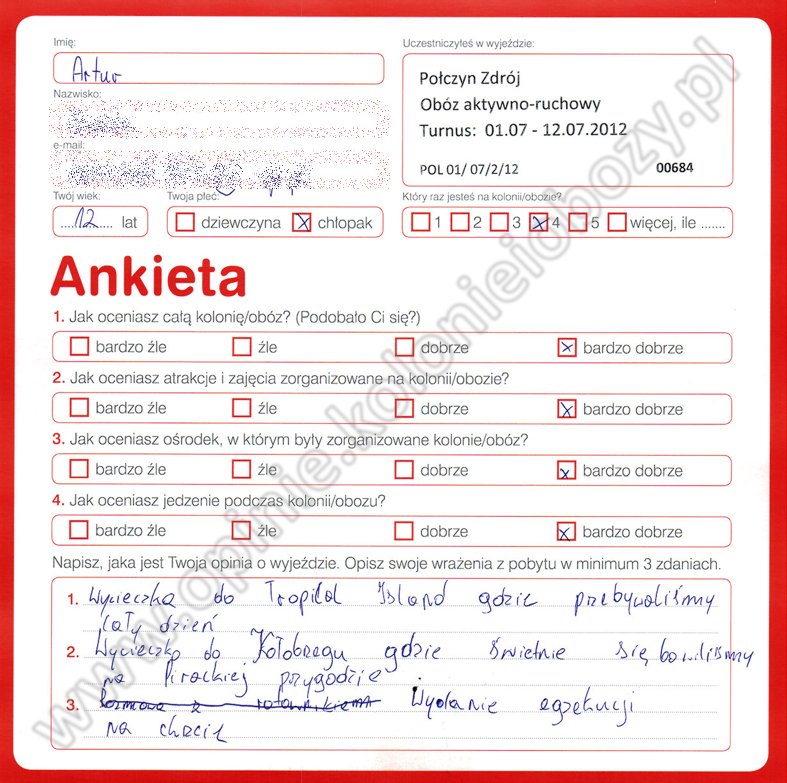 Imię:
Artur
Uczestniczyłeś w wyjeździe:
Połczyn Zdrój
Obóz aktywno-ruchowy
Turnus: 01.07 - 12.07.2012
POL 01/ 07/2/12 00684
Nazwisko:
e-mail:
Twój wiek:
....12.... lat
Twoja płeć:
dziewczyna chłopak
Który raz jesteś na kolonii/obozie?
1 2 3 4 5 więcej, ile .......
Ankieta
1. Jak oceniasz całą kolonię/obóz? (Podobało Ci się?)
bardzo źle źle dobrze bardzo dobrze
2. Jak oceniasz atrakcje i zajęcia zorganizowane na kolonii/obozie?
bardzo źle źle dobrze bardzo dobrze
3. Jak oceniasz ośrodek, w którym były zorganizowane kolonie/obóz?
bardzo źle źle dobrze bardzo dobrze
4. Jak oceniasz jedzenie podczas kolonii/obozu?
bardzo źle źle dobrze bardzo dobrze
Napisz, jaka jest Twoja opinia o wyjeździe. Opisz swoje wrażenia z pobytu w minimum 3 zdaniach.
1. Wycieczka do Tropical Island gdzie przebywaliśmy
cały dzień
2. Wycieczka do Kołobrzegu gdzie świetnie się bawiliśmy
na Pirackiej przygodzie
3. Rozmowa z ratownikiem Wydanie egzekucji
na chrzcie
www.opinie.kolonieiobozy.pl